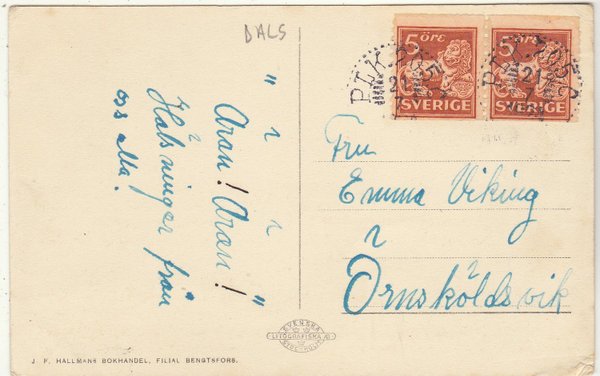 DALS
"Äran! Äran!"
Hälsningar från
oss alla!
5 ÖRE
SVERIGE
5 ÖRE
SVERIGE
21
21
Fru
Emma Viking
Örnsköldsvik
SVENSKA
LITOGRAFISKA AB
STOCKHOLM
J. F. HALLMANS BOKHANDEL, FILIAL BENGTSFORS.